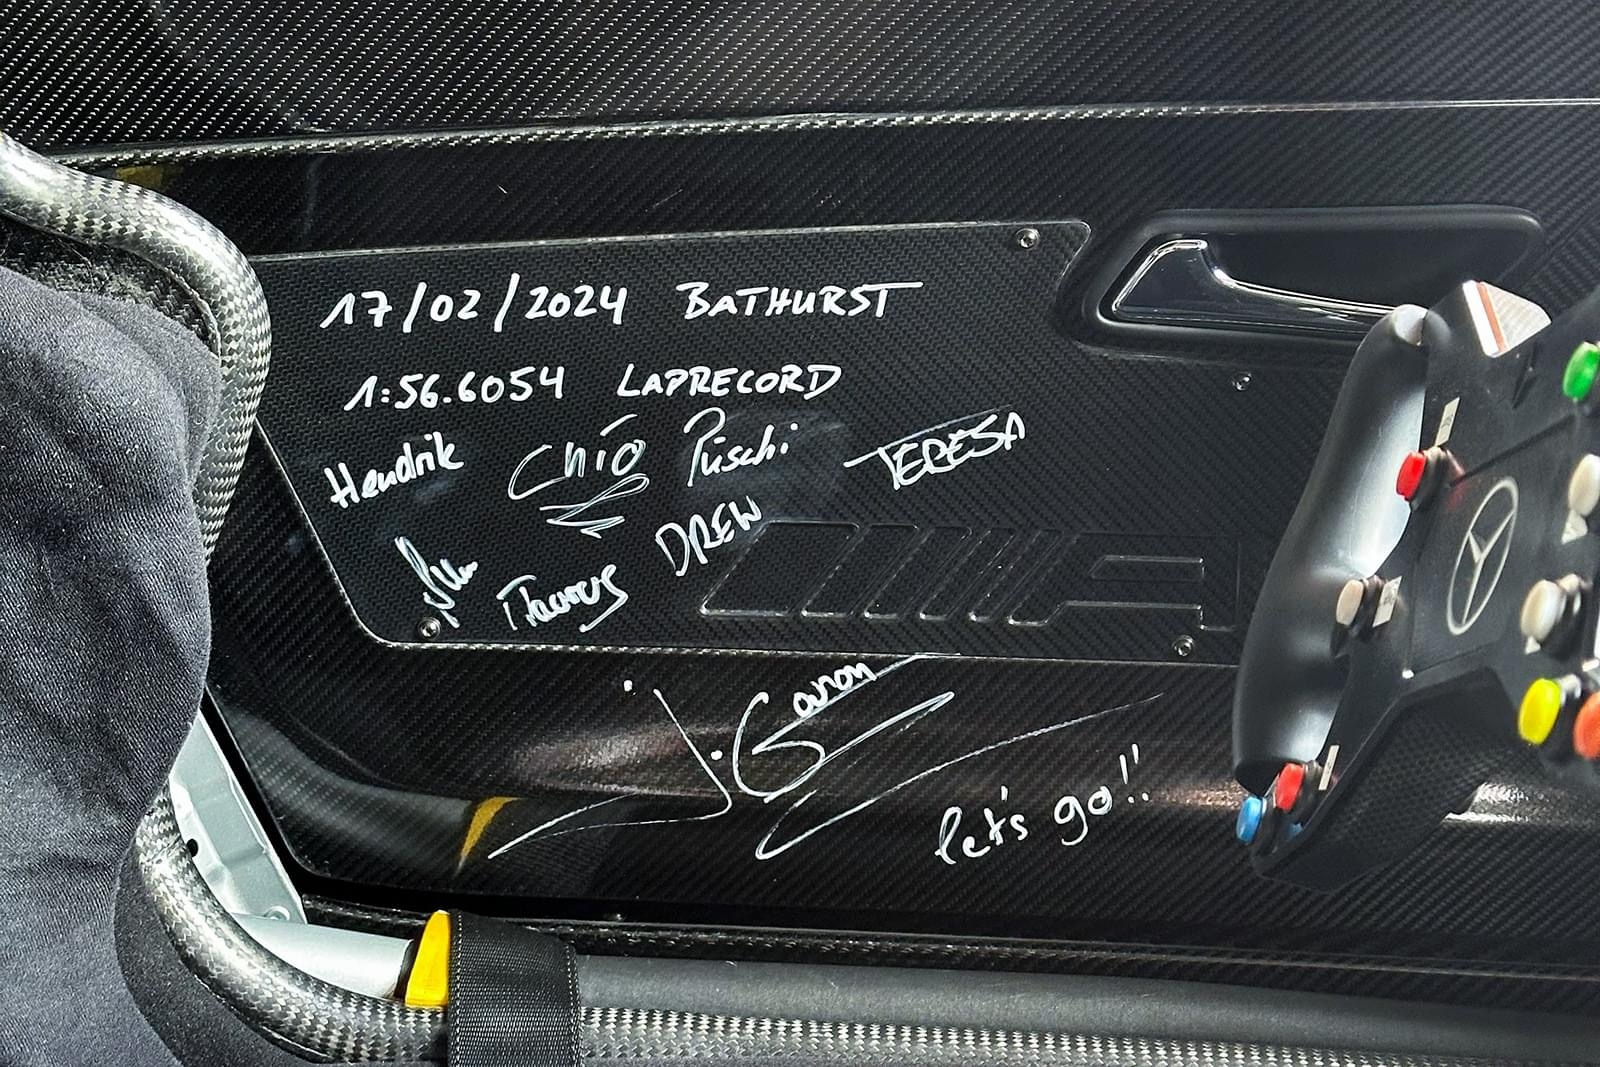 17/02/2024 BATHURST
1:56.6054 LAPRECORD
Hendrik Chio Püschi TERESA
Thomas DREW
J. Gounon
let's go!!
AMG